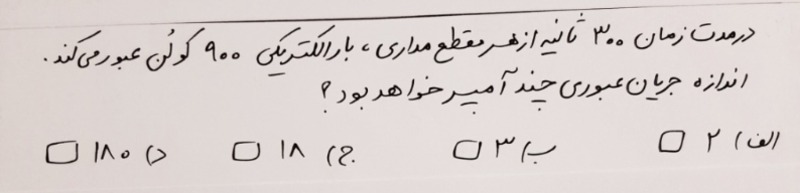 در مدت زمان ۳۰۰ ثانیه از هر مقطع مداری، بار الکتریکی ۹۰۰ کولُن عبور می‌کند.
اندازه جریان عبوری چند آمپر خواهد بود؟
الف) ۲ □ ب) ۳ □ ج) ۱۸ □ د) ۱۸۰ □